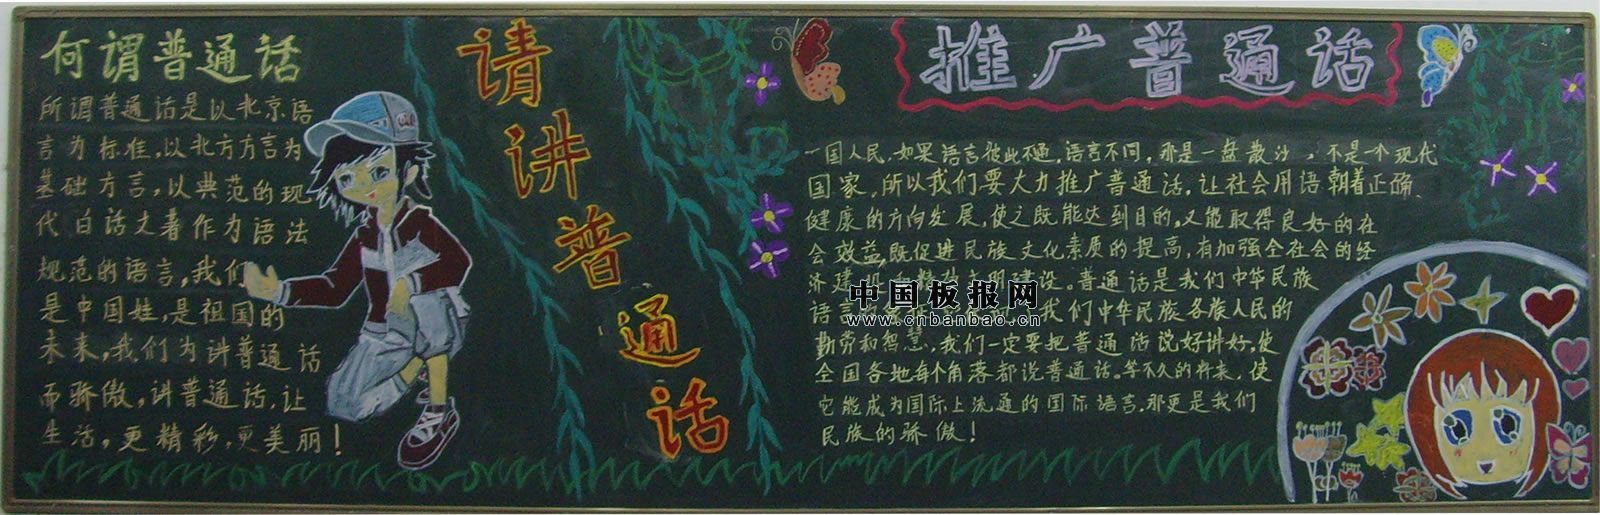 何谓普通话
所谓普通话是以北京语
言为标准,以北方方言为
基础方言,以典范的现
代白话文著作为语法
规范的语言,我们
是中国娃,是祖国的
未来,我们为讲普通话
而骄傲,讲普通话,让
生活,更精彩,更美丽!
请讲普通话
推广普通话
一国人民,如果语言彼此不通,语言不同,那是一盘散沙,不是个现代
国家,所以我们要大力推广普通话,让社会用语朝着正确、
健康的方向发展,使之既能达到目的,又能取得良好的社
会效益,既促进民族文化素质的提高,有加强全社会的经
济建设和精神文明建设。普通话是我们中华民族
语言 我们中华民族各族人民的
勤劳和智慧,我们一定要把普通话说好讲好,使
全国各地每个角落都说普通话。等不久的将来,使
它能成为国际上流通的国际语言,那更是我们
民族的骄傲!
中国板报网
www.cnbanbao.cn